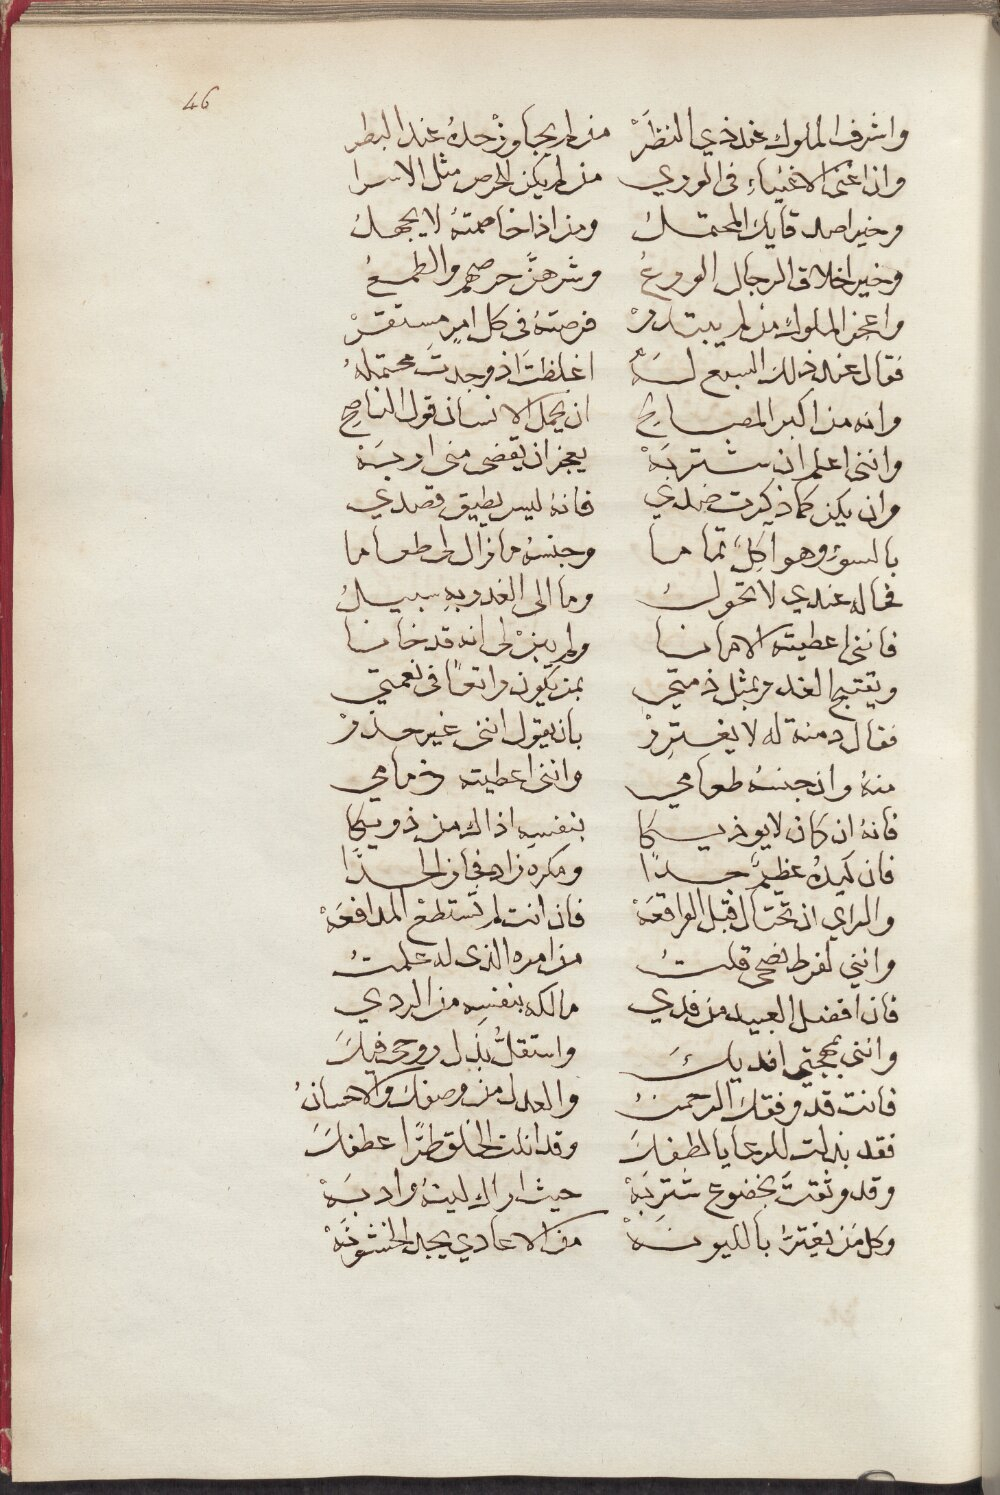 46
واشرف الملوك عند ذي النظَرْ من لم يجاوزْ حدهُ عند البطر
وان اغنى الاغنيآءِ فى الوري من لم يكن للحرص مثل الاسرا
وخير اصدقايك المحتملُ ومن اذا خاصمتهُ لا يجهلُ
وخير اخلاق الرجال الورعُ وشرهنَّ حرصهم والطمعُ
واعجز الملوك من لم يبتدرْ فرصتهُ فى كل امرٍ مستقرْ
فقال عند ذلك السبع لَهُ اغلظتَ اذ وجدتَ محتملهُ
وانه من اكبر المصابحِ ان يحمل الانسان قول الناصحِ
واننى اعلم ان شتربَهْ يعجز ان يقضى منى اربَهْ
وان يكن كما ذكرت ضدي فانهُ ليس يطيق قصدي
بالسوءِ وهو آكلٌ تماما وجنسهُ ما زال لى طعاما
فماله عندي لا تحولُ وما الى الغدر بهِ سبيلُ
فاننى اعطيته الامانا ولم يبنْ لى انه قد خانا
ويقبح الغدر بمثل ذمتي بمن يكون راتعًا فى نعمتي
فقال دمنة له لا يغتررْ بان يقول اننى غير حذرْ
منهُ وان جنسهُ طعامي واننى اعطيته ذمامي
فانهُ ان كان لا يوذيكا بنفسهِ اذاك من ذويكا
فان كيدهُ عظيمٌ جدًا ومكره زاد فجاز الحدًّا
والراي ان تحتال قبل الواقعَهْ فان انت لم تستطعْ المدافعَهْ
واننى لفرط نصحى قلتُ من امره الذى له علمتُ
فان افضل العبيد من فدي مالكه بنفسِه من الردي
واننى بمهجتي افديكَ واستقلُّ بذل روحى فيكَ
فانت قد وفقك الرحمنُ والعدل من وصفك والاحسانُ
فقد بذلت للرعايا لطفكَ وقد انلت الخلق طرًّا عطفكَ
وقد وثقتَ بخضوع شتربَهْ حيث اراك لينهُ وادبَهْ
وكل من يغترُّ بالليونَهْ من الاعادي يجد الخشونَهْ